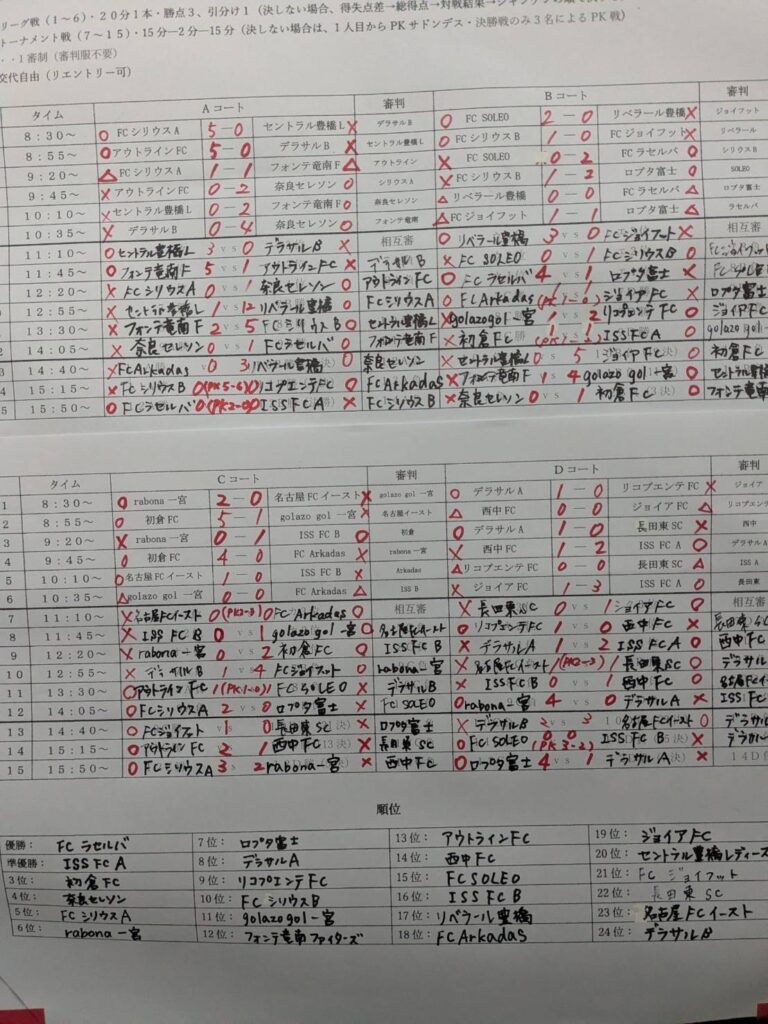 リーグ戦（１～６）・２０分１本・勝点３、引分け１（決しない場合、得失点差→総得点→対戦結果→
トーナメント戦（７～１５）・15分―2分―15分（決しない場合は、１人目からＰＫサドンデス・決勝戦のみ３名によるＰＫ戦）
・・１審制（審判服不要）
交代自由（リエントリー可）
タイム Ａコート 審判 Ｂコート 審判
8：30～ ○ FCシリウスA 5―0 セントラル豊橋L × デラサルB ○ FC SOLEO 2―0 リベラール豊橋 × ジョイフット
8：55～ ○ アウトラインFC 5―0 デラサルB × セントラル豊橋L ○ FCシリウスB 1―0 FCジョイフット × リベラール
9：20～ △ FCシリウスA 1―1 フォンテ竜南F △ アウトライン × FC SOLEO 0―2 FCラセルバ ○ シリウスB
9：45～ × アウトラインFC 0―2 奈良セレソン ○ シリウスA × FCシリウスB 1―2 ロプタ富士 ○ SOLEO
10：10～ × セントラル豊橋L 0―2 フォンテ竜南F ○ 奈良セレソン △ リベラール豊橋 0―0 FCラセルバ △ ロプタ富士
10：35～ × デラサルB 0―4 奈良セレソン ○ フォンテ竜南 △ FCジョイフット 1―1 ロプタ富士 △ ラセルバ
11：10～ ○ セントラル豊橋L 3 vs 0 デラサルB × 相互審 ○ リベラール豊橋 3 vs 0 FCジョイフット × 相互審
11：45～ ○ フォンテ竜南F 5 vs 1 アウトラインFC × デラサルB × FC SOLEO 0 vs 1 FCシリウスB ○ FCジョイフット
12：20～ × FCシリウスA 0 vs 1 奈良セレソン ○ アウトラインFC ○ FCラセルバ 4 vs 1 ロプタ富士 × FC SOLEO
12：55～ × セントラル豊橋L 1 vs 12 リベラール豊橋 ○ FCシリウスA ○ FC Arkadas (PK1-0) ジョイアFC × ロプタ富士
13：30～ × フォンテ竜南F 2 vs 5 FCシリウスB ○ セントラル豊橋L × golazo gol 一宮 1 vs 2 リコプエンテFC ○ ジョイアFC
14：05～ × 奈良セレソン 0 vs 1 FCラセルバ ○ フォンテ竜南F × 初倉FC 1 1 ISS FC A ○ golazo gol
14：40～ × FC Arkadas 0 3 リベラール豊橋 ○ 奈良セレソン × セントラル豊橋L 0 5 ジョイアFC ○ 初倉FC
15：15～ × FCシリウスB 0(PK5-6)0 リコプエンテFC ○ FC Arkadas × フォンテ竜南F 1 vs 4 golazo gol 一宮 ○ セントラル豊橋
15：50～ ○ FCラセルバ 0(PK2-0)0 ISS FC A × FCシリウスB × 奈良セレソン 0 vs 1 初倉FC ○ フォンテ竜南
タイム Ｃコート 審判 Ｄコート 審判
1 8：30～ ○ rabona一宮 2―0 名古屋FCイースト × golazo gol 一宮 ○ デラサルA 1―0 リコプエンテFC × ジョイア
2 8：55～ ○ 初倉FC 5―1 golazo gol 一宮 × 名古屋イースト △ 西中FC 0―0 ジョイアFC △ リコプエンテ
3 9：20～ × rabona一宮 0―1 ISS FC B ○ 初倉 ○ デラサルA 1―0 長田東SC × 西中
4 9：45～ ○ 初倉FC 4―0 FC Arkadas × rabona一宮 × 西中FC 1―2 ISS FC A ○ デラサルA
5 10：10～ ○ 名古屋FCイースト 1―0 ISS FC B × Arkadas △ リコプエンテFC 0―0 長田東SC △ ISS FC A
6 10：35～ △ golazo gol 一宮 0―0 FC Arkadas △ ISS FC B × ジョイアFC 1―3 ISS FC A ○ 長田東
7 11：10～ × 名古屋FCイースト 0(PK2-3)0 FC Arkadas ○ 相互審 × 長田東SC 0 vs 1 ジョイアFC ○ 相互審
8 11：45～ × ISS FC B 0 vs 1 golazo gol 一宮 ○ 名古屋FCイースト ○ リコプエンテFC 1 vs 0 西中FC × 長田東SC
9 12：20～ × rabona一宮 0 vs 2 初倉FC ○ ISS FC B × デラサルA 1 vs 2 ISS FC A ○ 西中FC
10 12：55～ × デラサルB 1 vs 4 FCジョイフット ○ rabona一宮 × 名古屋FCイースト 1(PK2-3)1 長田東SC ○ デラサル
11 13：30～ ○ アウトラインFC 1(PK1-0)1 FC SOLEO × デラサルB × ISS FC B 0 vs 1 西中FC ○ 名古屋FCイースト
12 14：05～ ○ FCシリウスA 2 vs 0 ロプタ富士 × FC SOLEO ○ rabona一宮 4 vs 0 デラサルA × ISS FC
13 14：40～ ○ FCジョイフット 1 0 長田東SC × ロプタ富士 × デラサルB 2 vs 3 名古屋FCイースト ○ デラサル
14 15：15～ ○ アウトラインFC 2 1 西中FC × 長田東SC ○ FC SOLEO 0 (PK3-2) 0 ISS FC B × デラサルB
15 15：50～ ○ FCシリウスA 3 vs 2 rabona一宮 × 西中FC ○ ロプタ富士 4 vs 1 デラサルA × 14D
順位
優勝： FCラセルバ 7位： ロプタ富士 13位： アウトラインFC 19位： ジョイアFC
準優勝： ISS FC A 8位： デラサルA 14位： 西中FC 20位： セントラル豊橋レディース
3位： 初倉FC 9位： リコプエンテFC 15位： FC SOLEO 21位： FCジョイフット
4位： 奈良セレソン 10位： FCシリウスB 16位： ISS FC B 22位： 長田東SC
5位： FCシリウスA 11位： golazo gol 一宮 17位： リベラール豊橋 23位： 名古屋FCイースト
6位： rabona一宮 12位： フォンテ竜南ファイターズ 18位： FC Arkadas 24位： デラサルB